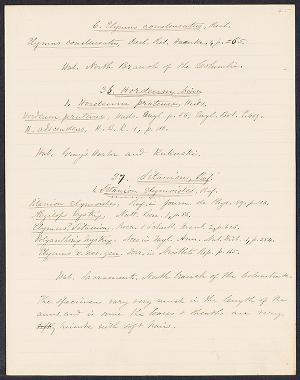 45
6. Elymus condensatus, Presl.
Elymus condensatus, Presl. Rel. Haenk. 1, p. 265.
Hab. North Branch of the Columbia.
36. Hordeum, Linn.
1. Hordeum pratense, Huds.
Hordeum pratense, Huds. Angl. p. 56; Engl. Bot. t. 409.
H.B.K. 1, p. 180.
Hab. Gray's Harbor and
37. Sitanion, Raf.
1. Sitanion Elymoides, Raf.
Sitanion Elymoides, Raf. in Journ. de Phys. 89, p. 103.
Aegilops hystrix, Nutt. Gen. 1, p. 86.
Elymus Sitanion, Roem. & Schult. Mant. 2, p. 426.
Polyanthrix hystrix, Nees in Tayl. Ann. Nat. Hist. 1, p. 284.
Elymus
Hab. Sacramento, North Branch of the Columbia &c.
The specimens vary very much in the length of the
awns, and in some the leaves & sheaths are very
with soft hairs.